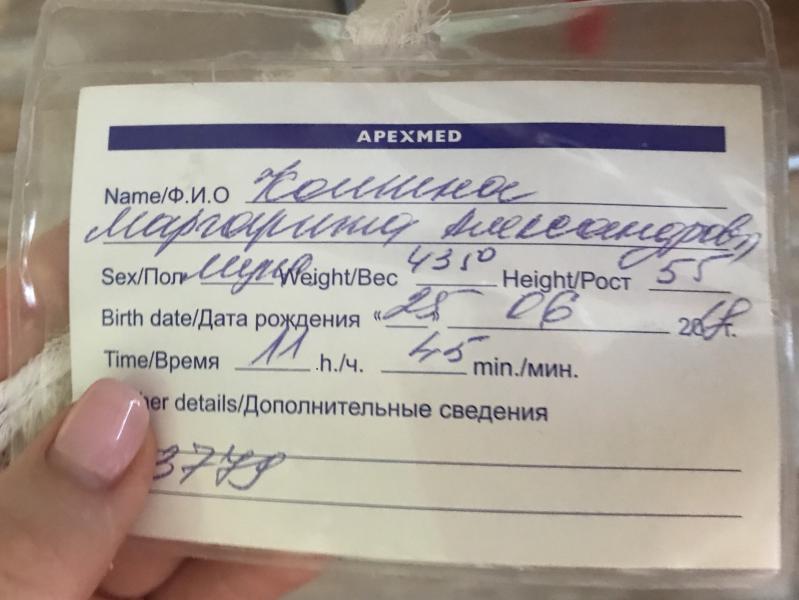 APEXMED
Name/Ф.И.О
Маргарита Александровн
Sex/Пол Муж Weight/Вес 4350 Height/Рост 55
Birth date/Дата рождения «25» 06 2018г.
Time/Время 11 .h./ч. 45 min./мин.
her details/Дополнительные сведения
3779